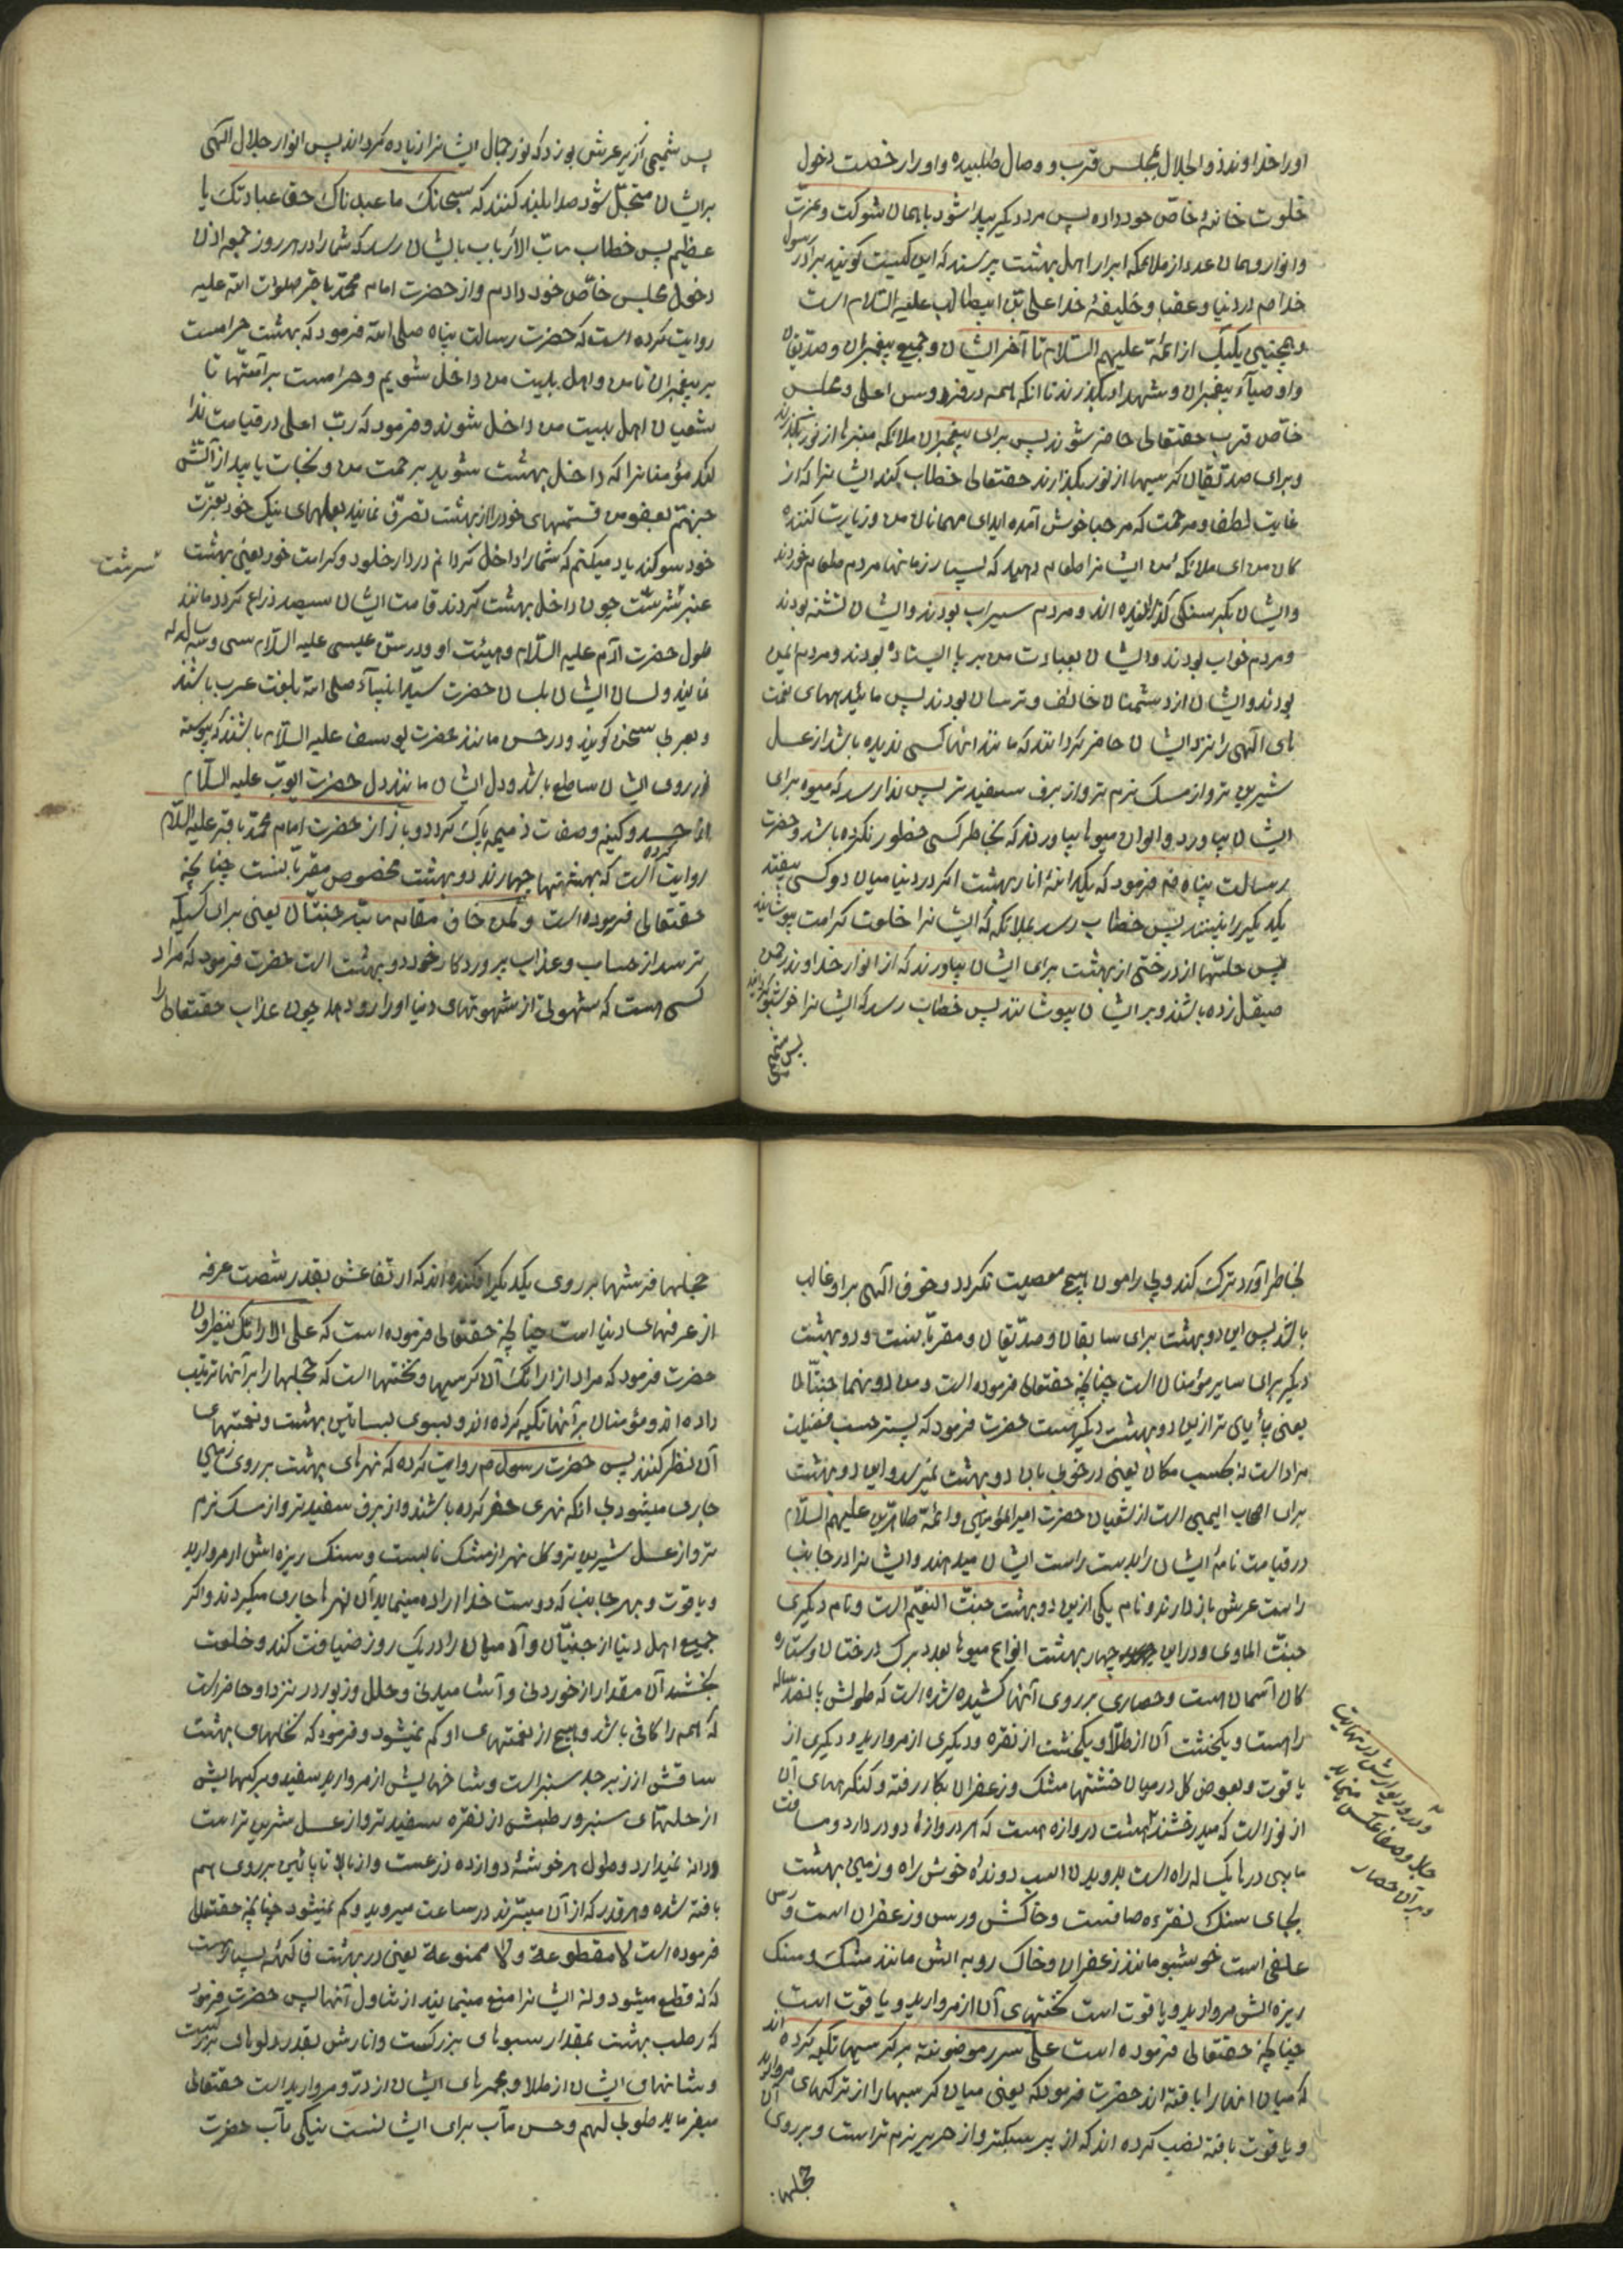 اورا خداوند ذو الجلال بمجلس قرب و وصال طلبیده و او را رخصت دخول
خلوت خانهٔ خاص خود داده پس مرد دیکر پیدا شود با همان شوکت و عزت
و انوار و همان عدد از ملائکه ابرار اهل بهشت پرسند که این کیست کویند برادر رسول
خدا صم در دنیا و عقبا و خلیفهٔ خدا علی بن ابیطالب علیه السلام است
و همچنین یکیک از ائمه علیهم السلام تا آخر ایشان و جمیع پیغمبران و صدیقان
و اوصیآء پیغمبران و شهدا بکذرند تا آنکه همه در فردوس اعلی و مجلس
خاص قرب حقتعالی حاضر شوند پس برای پیغمبران ملائکه منبرها از نور بکذارند
و برای صدیقان کرسیها از نور بکذارند حقتعالی خطاب کند ایشانرا که از
غایت لطف و مرحمت که مرحبا خوش آمده اید ای مهمانان من و زیارت کننده
کان من ای ملائکه من ایشانرا طعام دهید که بسیار زمانها مردم طعام خوردند
و ایشان بکرسنکی کذرانیده اند و مردم سیراب بودند و ایشان تشنه بودند
و مردم خواب بودند و ایشان بعبادت من بر پا ایستاده بودند و مردم ایمن
بودند و ایشان از دشمنان خائف و ترسان بودند پس مائیدهای نعمت
های الهی را نزد ایشان حاضر کردانند که مانند انها کسی ندیده باشد از عسل
شیرین تر و از مسک نرم تر و از برف سفید تر پس ندا رسد که میوه برای
ایشان بیاورد و الوان میوها بیاورند که بخاطر کسی خطور نکرده باشد و حضرت
رسالت پناه صم فرمود که یکدانهٔ انار بهشت اکر در دنیا میان دو کسی بیفتد
یکدیکر را نبینند پس خطاب رسد بملائکه که ایشانرا خلعت کرامت بپوشانید
پس حلتها از درختی از بهشت برای ایشان بیاورند که از انوار خداوند رحمن
صیقل زده باشند و بر ایشان بپوشانند پس خطاب رسد که ایشانرا خوشبو کردانید
پس شمیمی
پس شمیمی از زیر عرش بوزد که نور جمال ایشانرا زیاده کرداند پس انوار جلال الهی
بر ایشان متجلی شود صدا بلند کنند که سبحانک ما عبدناک حق عبادتک یا
عظیم پس خطاب رب الارباب بایشان رسد که شما را در هر روز جمعه اذن
دخول مجلس خاص خود دادم و از حضرت امام محمد باقر صلوات الله علیه
روایت کرده است که حضرت رسالت پناه صلی الله فرمود که بهشت حرامست
بر پیغمبران تا من و اهل بیت من داخل شویم و حرامست بر امتها تا
شعیان اهل بیت من داخل شوند و فرمود که رب اعلی در قیامت ندا
کند مؤمنانرا که داخل بهشت شوید برحمت من و نجات یابید از آتش
جهنم بعفو من قسمتهای خود را از بهشت تصرف نمایند بعملهای نیک خود بعزت
خود سوکند یاد میکنم که شما را داخل کردانم در دار خلود و کرامت خود یعنی بهشت
عنبر سرشت چون داخل بهشت کردند قامت ایشان سیصد ذراع کردد مانند
سرشت
طول حضرت آدم علیه السلام و هیئت او و در سن عیسی علیه السلام سی و سه ساله
نمایند و لسان ایشان بلسان حضرت سید انبیآء صلی الله بلغت عرب باشند
و بعربی سخن کویند و در حسن مانند حضرت یوسف علیه السلام باشند که پیوسته
نور روی ایشان ساطع باشد و دل ایشان مانند دل حضرت ایوب علیه السلام
از حسد و کینه و صفات ذمیمه پاک کردد و باز از حضرت امام محمد باقر علیه السلام
روایت کرده است که بهشتها چهارند دو بهشت مخصوص مقربانست چنانچه
حقتعالی فرموده است و لمن خاف مقام ربه جنتان یعنی برای کسیکه
ترسد از حساب و عذاب پروردکار خود دو بهشت است حضرت فرمود که مراد
کسی است که شهوتی از شهوتهای دنیا او را رو دهد چون عذاب حقتعالی را
بخاطر آورد ترک کند و پیرامون هیچ معصیت نکردد و خوف الهی بر او غالب
باشد پس این دو بهشت برای سابقان و صدیقان و مقربانست و دو بهشت
دیکر برای سایر مؤمنان است چنانچه حقتعالی فرموده است و من دونهما جنتان
یعنی پائیای تر ازین دو بهشت دیکر هست حضرت فرمود که پستر حسب فضیلت
مراد است نه بحسب مکان یعنی در خوبی بان دو بهشت نمیرسد و این دو بهشت
برای اصحاب الیمین است از شعیان حضرت امیرالمؤمنین و ائمه طاهرین علیهم السلام
در قیامت نامهٔ ایشان را بدست راست ایشان میدهند و ایشانرا در جانب
راست عرش باز دارند و نام یکی ازین دو بهشت جنت النعیم است و نام دیکری
جنت الماوی و در این چهار بهشت انواع میوها بعدد برک درختان و ستاره
کان آسمان هست و حصاری بر روی آنها کشیده شده است که طولش پانصد ساله
راهست و یکخشت آن از طلا و یکخشت از نقره و دیکری از مروارید و دیکری از
یاقوت و بعوض کل در میان خشتها مشک و زعفران بکار رفته و کنکرهای آن
از نور است که میدرخشند بهشت دروازه هست که هر دروازه دو در دارد و مسافت
و در و دیوارش در نهایت
جلا و صفا عکس مینماید
و بر آن حصار
مابین درها یکساله راه است بدویدن اسب دونده خوش راه و زمین بهشت
بجای سنک نقره صافست و خاکش ورس و زعفران است و رس
علفی است خوشبو مانند زعفران و خاک روبه اش مانند مشک و سنک
ریزه اش مروارید و یاقوت است تختهای آن از مروارید و یاقوت است
چنانچه حقتعالی فرموده است علی سرر موضونة بر کرسیها تکیه کرده اند
که میان انها را بافته اند حضرت فرمود که یعنی میان کرسیها را از ترکهای مروارید
و یاقوت بافته نصب کرده اند که از پر سبکتر و از حریر نرم تر است و بر روی آن
حجلها
حجلها فرشها بر روی یکدیکر افکنده اند که ارتفاعش بقدر شصت غرفه
از غرفهای دنیا است چنانچه حقتعالی فرموده است که علی الارائک ینظرون
حضرت فرمود که مراد از ارائک آن کرسیها و تختها است که حجلها را بر آنها ترتیب
داده اند و مؤمنان بر آنها تکیه کرده اند و بسوی بساتین بهشت و نعمتهای
آن نظر کنند پس حضرت رسول صم روایت کرده که نهرهای بهشت بر روی زمین
جاری میشود بی انکه نهری حفر کرده باشند و از برف سفید تر و از مسک نرم
تر و از عسل شیرین تر و کل نهر از مشک نابست و سنک ریزه اش از مروارید
و یاقوت و بهر جانب که دوست خدا اراده مینماید آن نهرها جاری میکردند و اکر
جمیع اهل دنیا از جنیان و آدمیان را در یک روز ضیافت کند و خلعت
بخشد آن مقدار از خوردنی و آشامیدنی و حلل و زیور در نزد او حاضر است
که همه را کافی باشد و هیچ از نعمتهای او کم نمیشود و فرمود که نخلهای بهشت
ساقش از زبرجد سبز است و شاخهایش از مروارید سفید و برکهایش
از حلتهای سبز و رطبش از نقره سفید تر و از عسل شیرین تر است
و دانه نمیدارد و طول هر خوشهٔ دوازده ذرعست و از بالا تا پائین بر روی هم
بافته شده و هر قدر که از آن میبرند در ساعت میروید و کم نمیشود چنانچه حقتعالی
فرموده است لا مقطوعة ولا ممنوعة یعنی در بهشت فاکهه بسیار هست
که نه قطع میشود و نه ایشانرا منع مینمایند از تناول آنها پس حضرت فرمود
که رطب بهشت بمقدار سبوهای بزرکست و انارش بقدر دلوهای بزرکست
و شانهای ایشان از طلا و مجمرهای ایشان از در و مروارید است حقتعالی
میفرماید طوبی لهم و حسن مآب برای ایشانست نیکی مآب حضرت